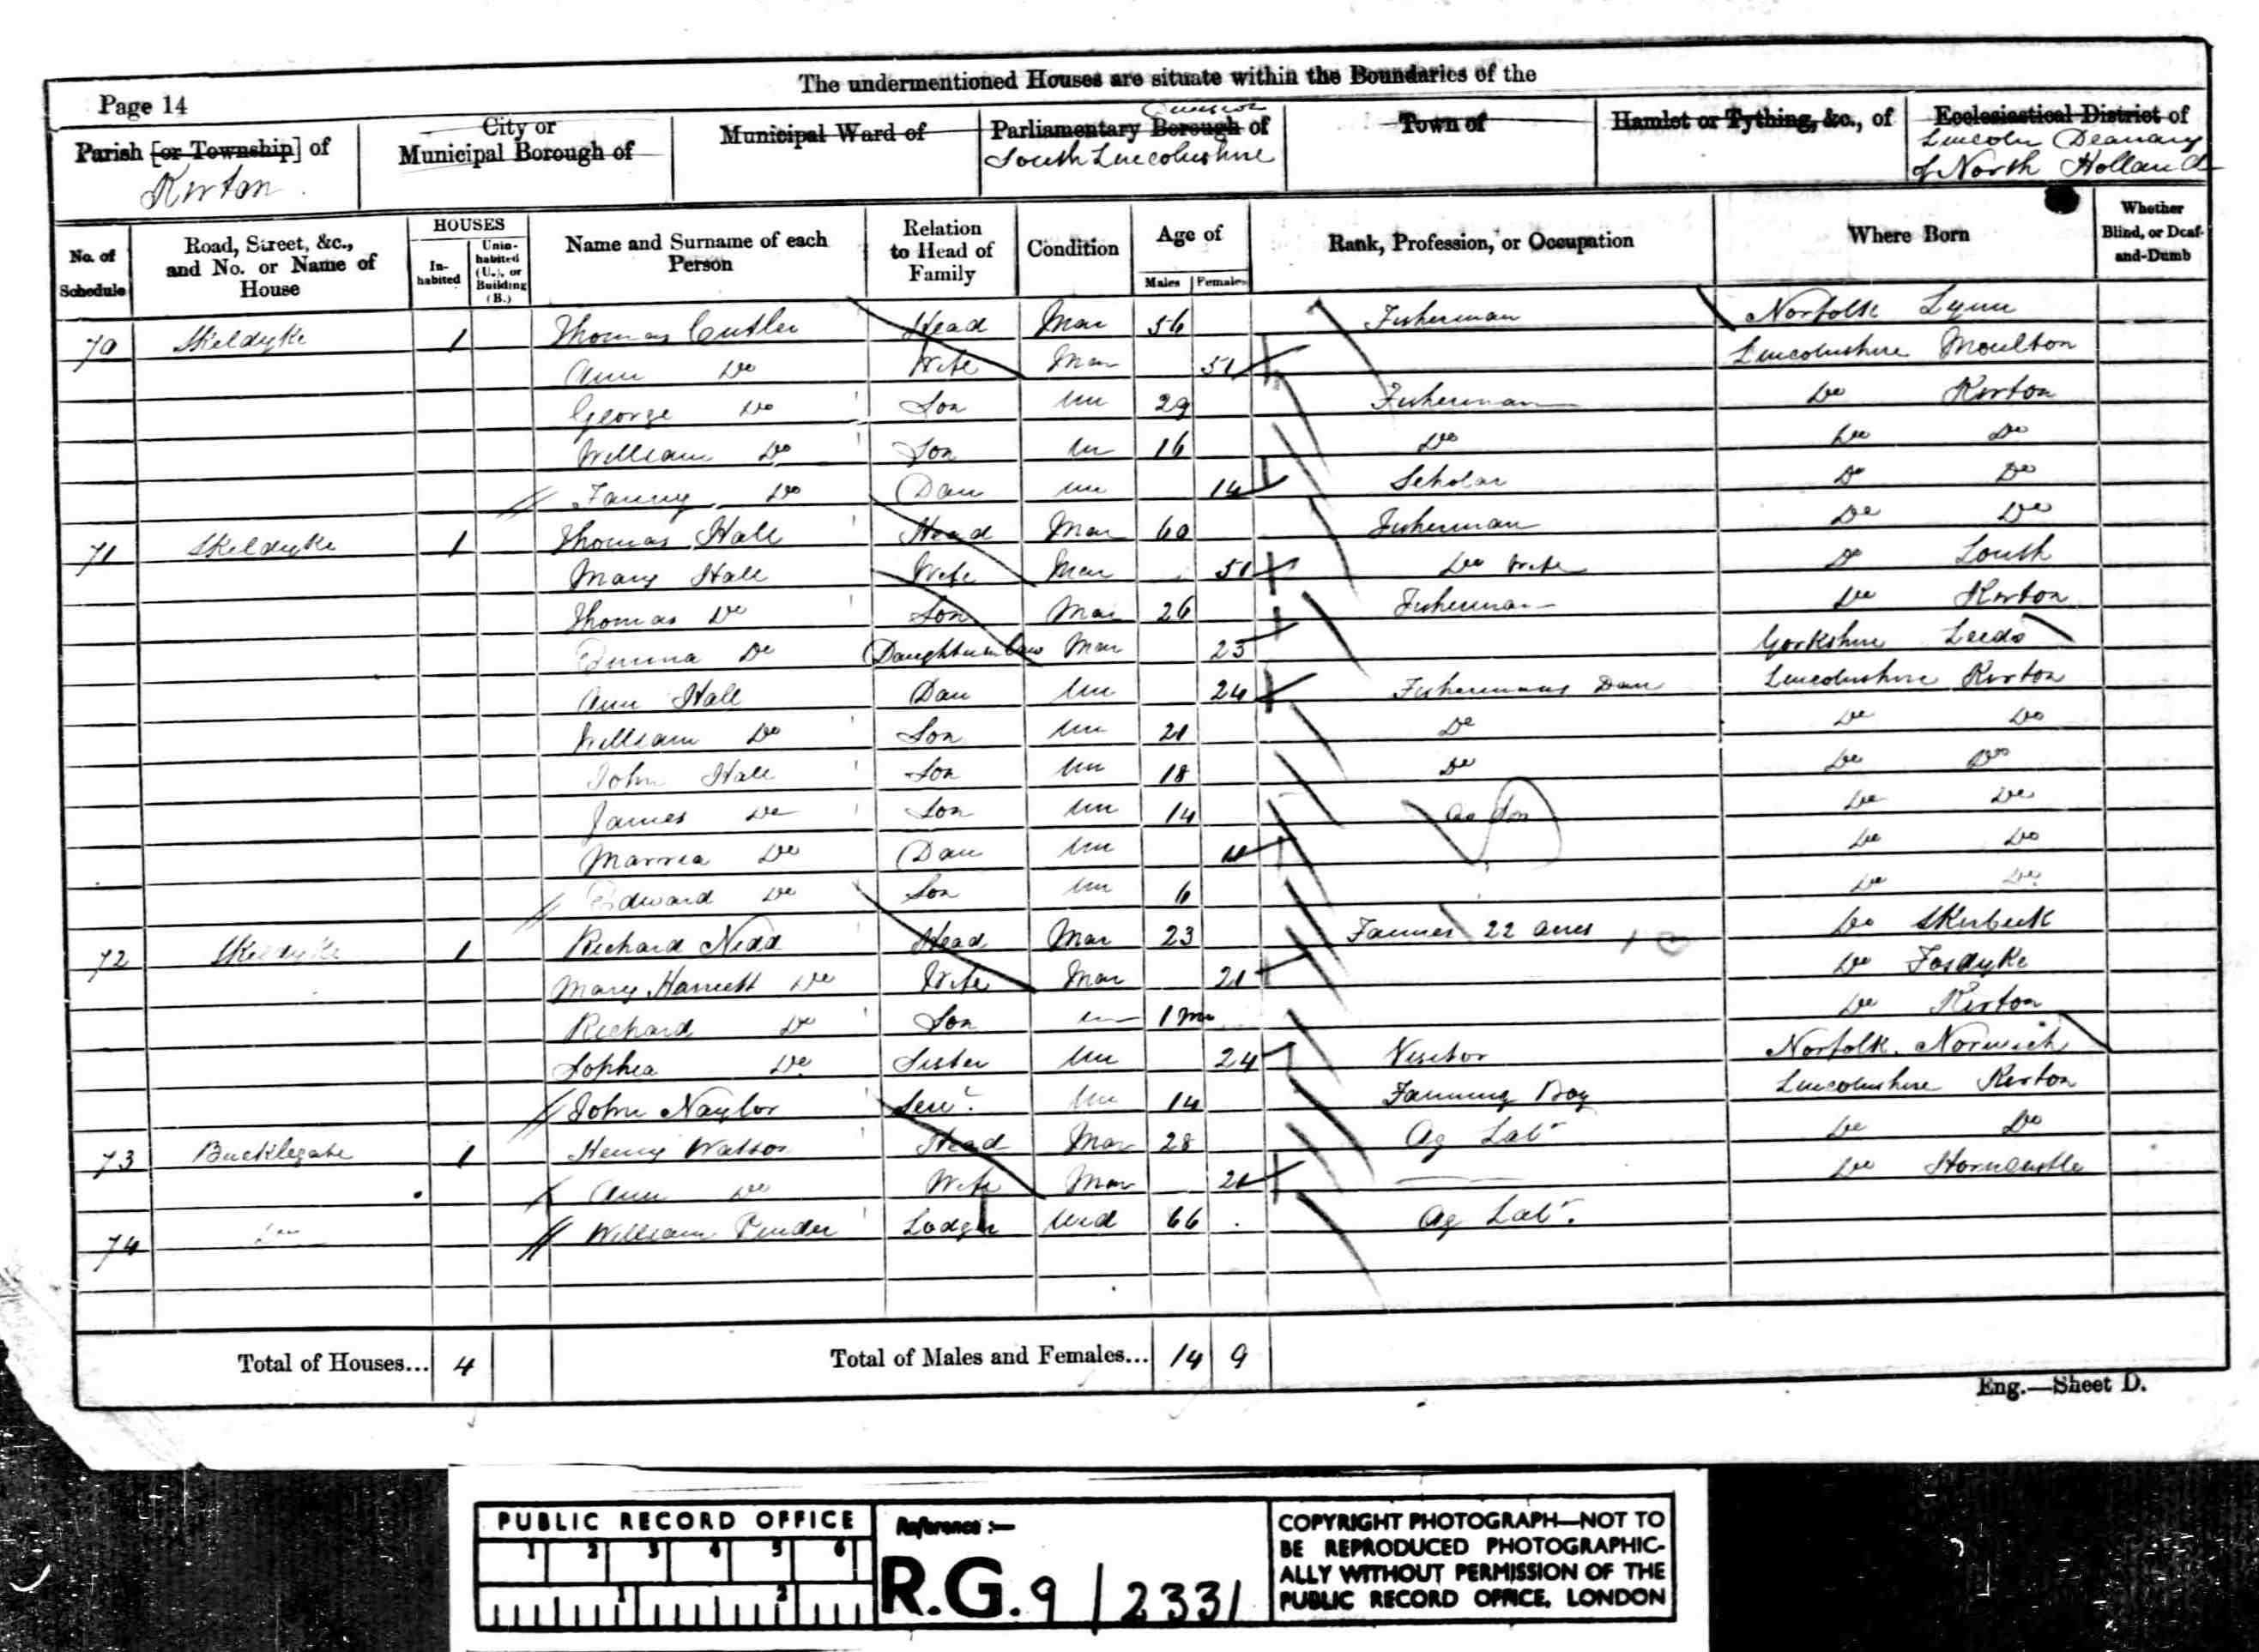 The undermentioned Houses are situate within the Boundaries of the
Page 14
Parish [or Township] of Kirton
City or Municipal Borough of
Municipal Ward of
Parliamentary Borough of Division South Lincolnshire
Town of
Hamlet or Tything, &c., of
Ecclesiastical District of Lincoln Deanary of North Holland
No. of Schedule
Road, Street, &c., and No. or Name of House
HOUSES
In-habited
Unin-habited (U.), or Building (B.)
Name and Surname of each Person
Relation to Head of Family
Condition
Age of
Males
Females
Rank, Profession, or Occupation
Where Born
Whether Blind, or Deaf-and-Dumb
70 Skeldyke 1 Thomas Cutler Head Mar 56 Fisherman Norfolk Lynn
Ann Do Wife Mar 51 Lincolnshire Moulton
George Do Son Un 29 Fisherman Do Kirton
William Do Son Un 16 Do Do Do
Fanny Do Dau Un 14 Scholar Do Do
71 Skeldyke 1 Thomas Hall Head Mar 60 Fisherman Do Do
Mary Hall Wife Mar 51 Do Wife Do Louth
Thomas Do Son Mar 26 Fisherman Do Kirton
Emma Do Daughter in law Mar 23 Yorkshire Leeds
Ann Hall Dau Un 24 Fishermans Dau Lincolnshire Kirton
William Do Son Un 21 Do Do Do
John Hall Son Un 18 Do Do Do
James Do Son Un 14 Do Do
Marria Do Dau Un Do Do
Edward Do Son Un 6 Do Do
72 Skeldyke 1 Richard Nidd Head Mar 23 Farmer 22 acres Do Skirbeck
Mary Harriett Do Wife Mar 21 Do Fosdyke
Richard Do Son 1 m Do Kirton
Sophia Do Sister Un 24 Visitor Norfolk. Norwich
John Naylor Serv. Un 14 Farming Boy Lincolnshire Kirton
73 Bucklegate 1 Henry Watson Head Mar 28 Ag Labr Do Do
Ann Do Wife Mar 21 Do Horncastle
74 Do William Pinder Lodger Wid 66 Ag Labr.
Total of Houses... 4
Total of Males and Females... 14 9
Eng.—Sheet D.
PUBLIC RECORD OFFICE
1 2 3 4 5 6
1 2
Reference :—
R.G. 9 / 2331
COPYRIGHT PHOTOGRAPH—NOT TO
BE REPRODUCED PHOTOGRAPHIC-
ALLY WITHOUT PERMISSION OF THE
PUBLIC RECORD OFFICE, LONDON